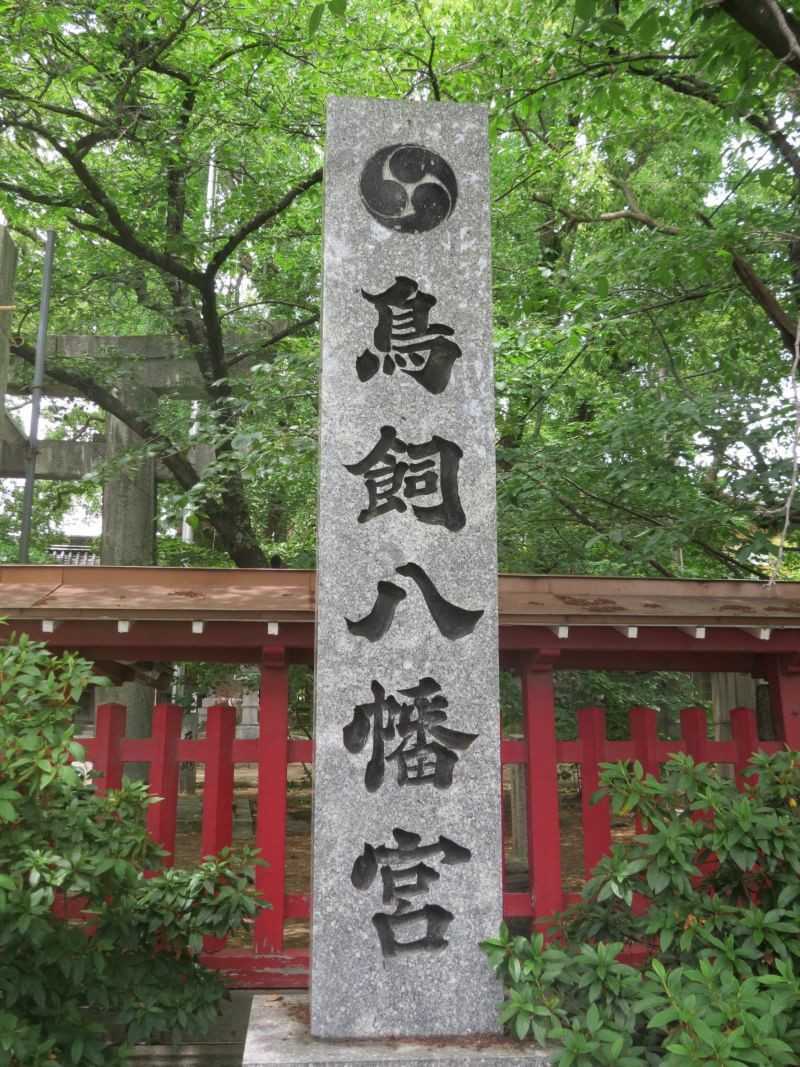 鳥飼八幡宮